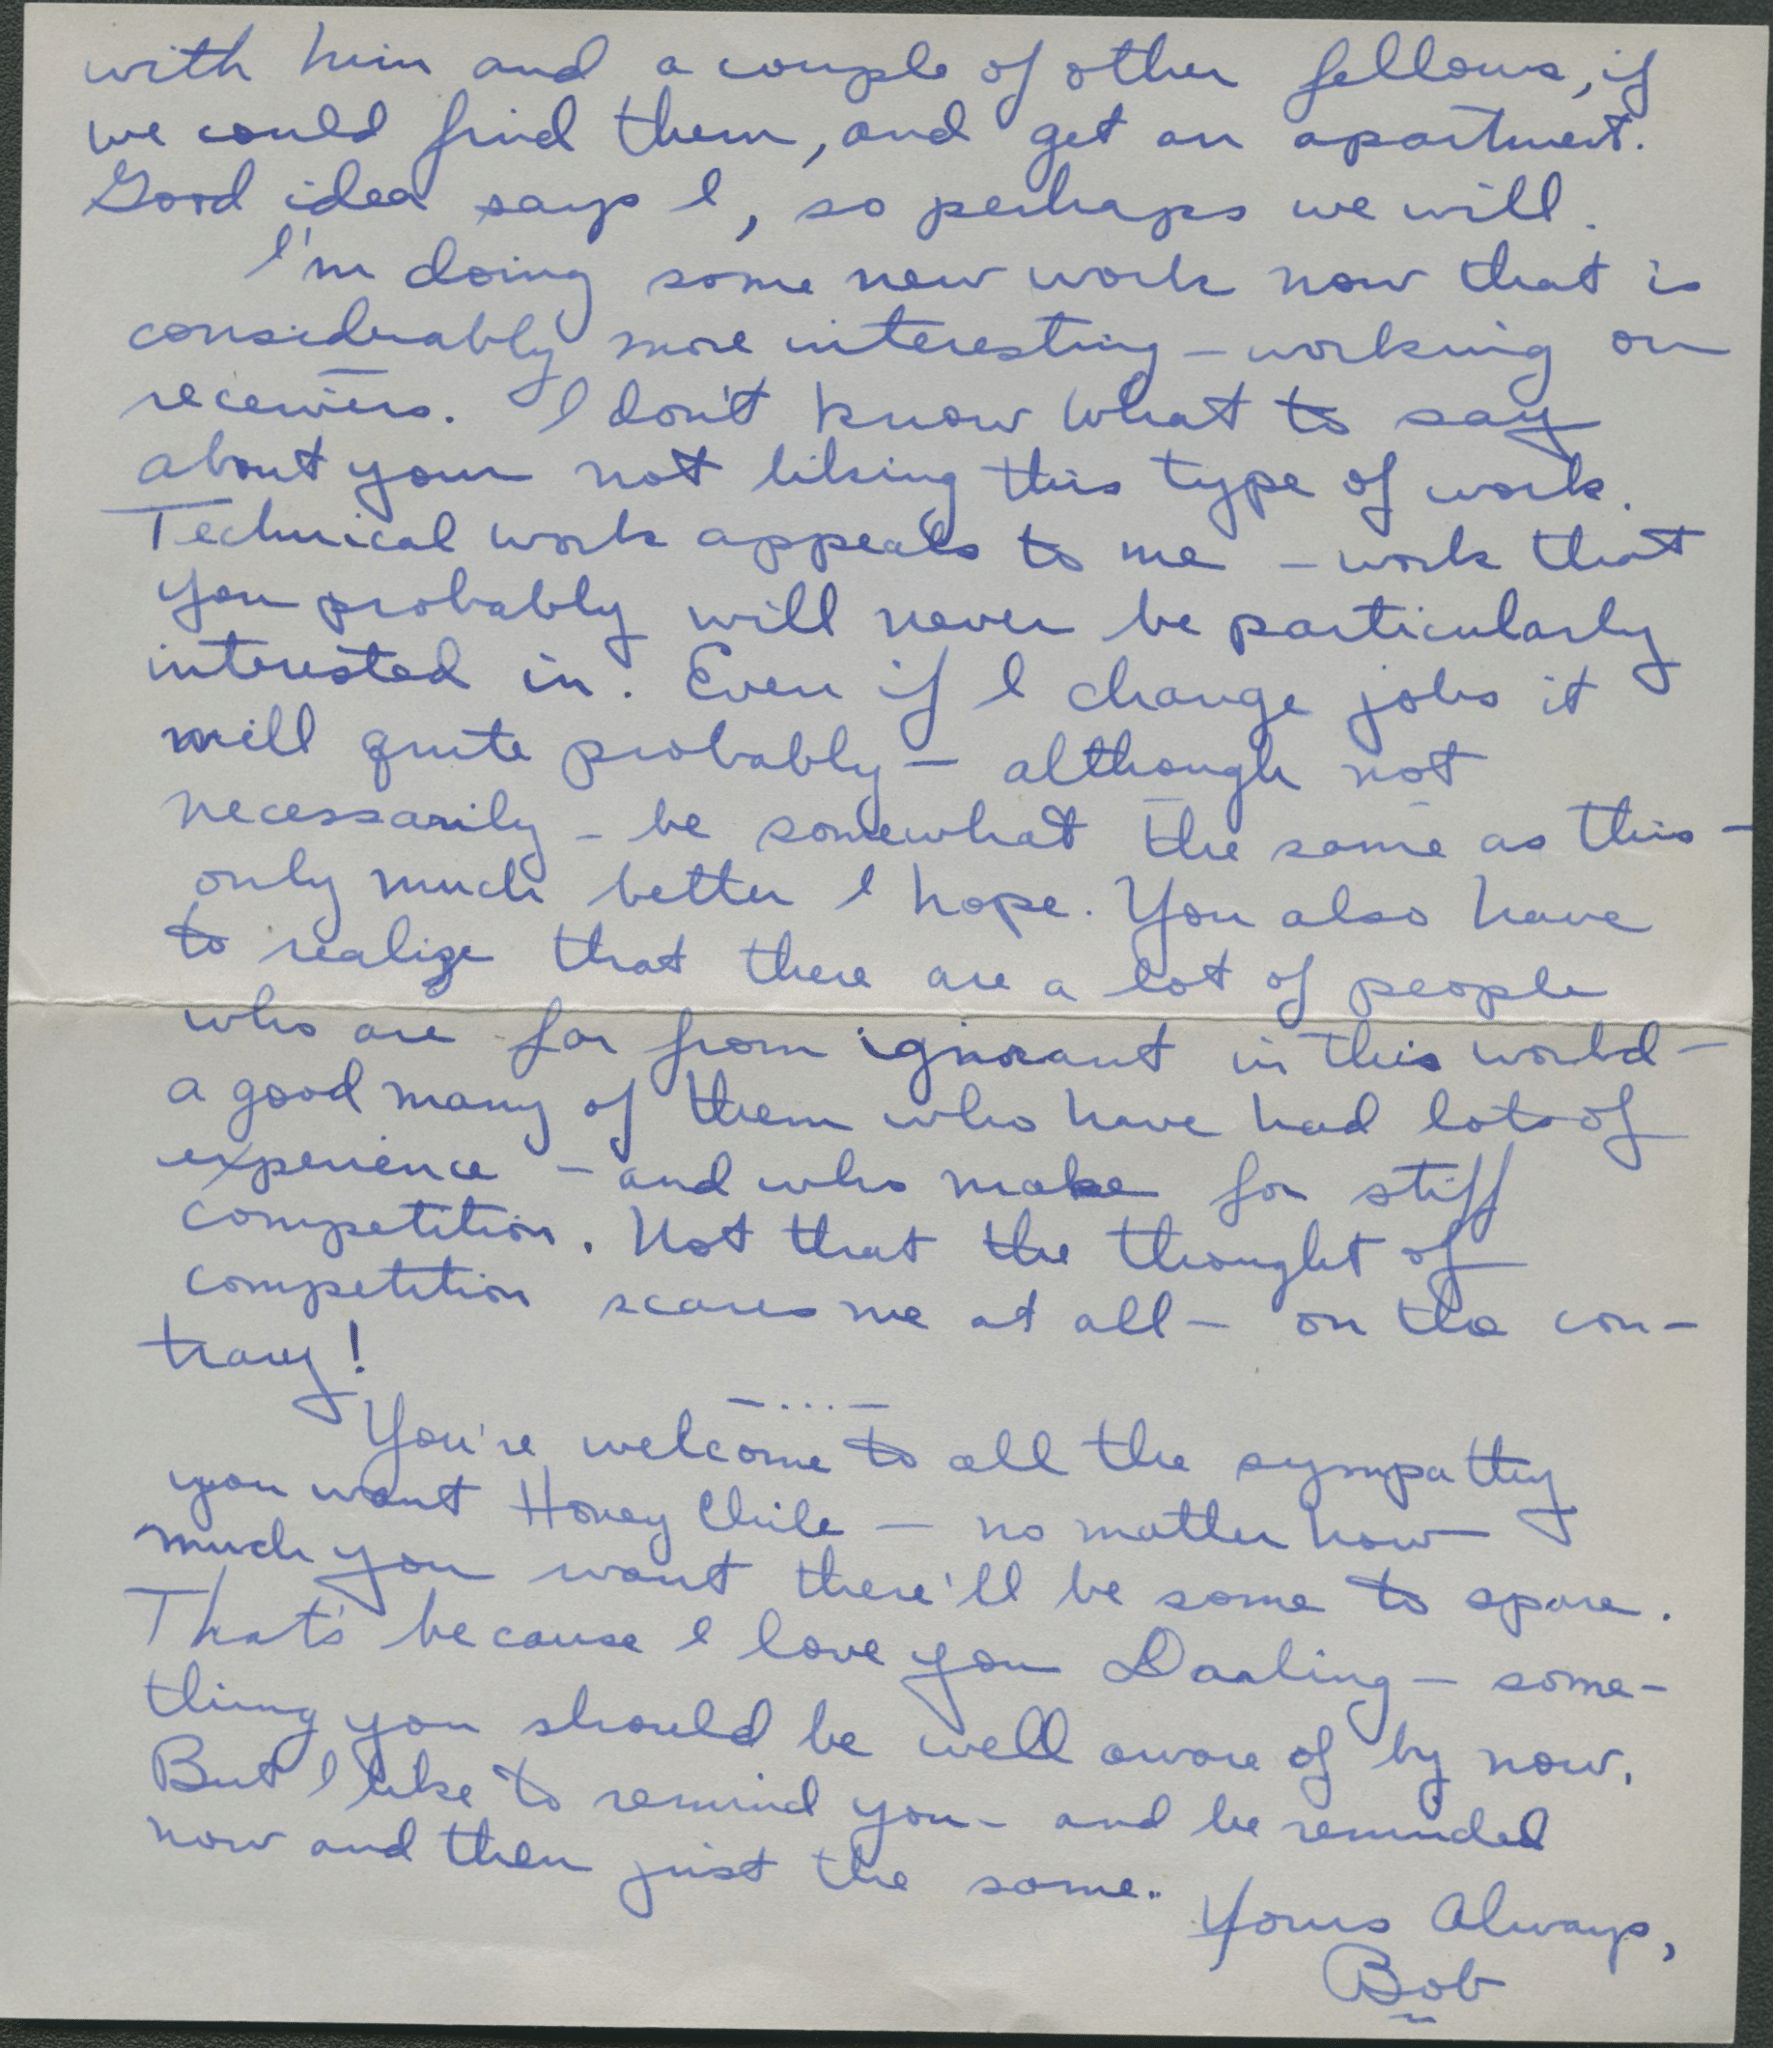 with him and a couple of other fellows, if
we could find them, and get an apartment.
Good idea says I, so perhaps we will.
I'm doing some new work now that is
considerably more interesting – working on
receivers. I don't know what to say
about your not liking this type of work.
Technical work appeals to me – work that
you probably will never be particularly
interested in. Even if I change jobs it
will quite probably – although not
necessarily – be somewhat the same as this –
only much better I hope. You also have
to realize that there are a lot of people
who are far from ignorant in this world –
a good many of them who have had lots of
experience – and who make for stiff
competition. Not that the thought of
competition scares me at all – on the con-
trary!
– . . . –
You're welcome to all the sympathy
you want Honey Chile – no matter how
much you want there'll be some to spare.
That's because I love you Darling – some-
thing you should be well aware of by now.
But I like to remind you – and be reminded
now and then just the same..
Yours Always,
Bob